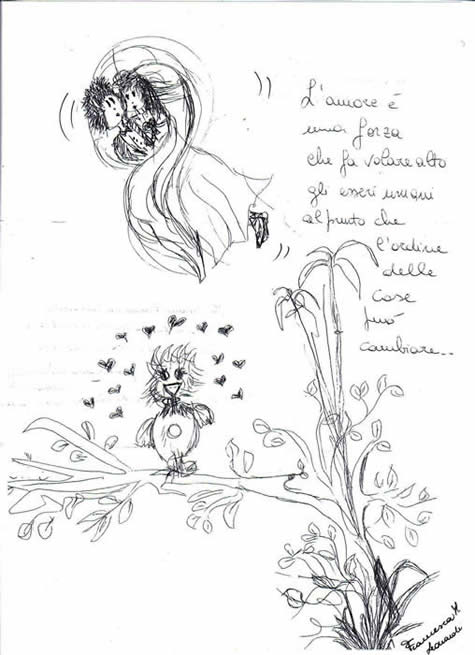 L'amore è
una forza
che fa volare alto
gli esseri umani
al punto che
l'ordine
delle
cose
può
cambiare...
Francesca M.